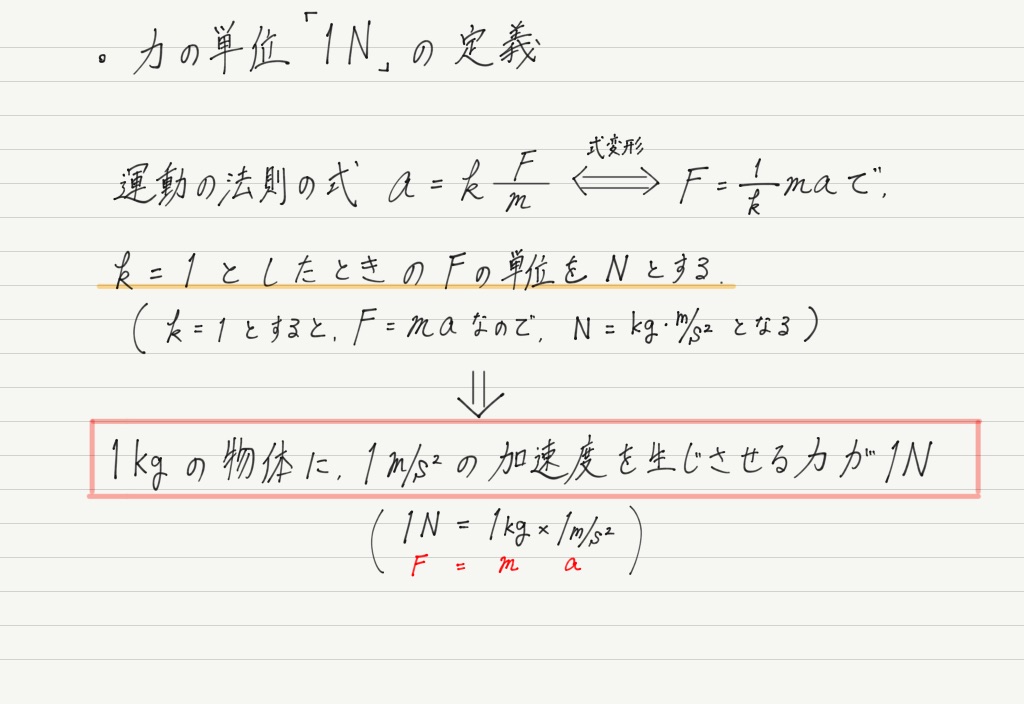 。力の単位「1N」の定義
式変形
運動の法則の式 a = k F/m ⟺ F = 1/k ma で、
k = 1 としたときの F の単位を N とする.
( k = 1 とすると, F = ma なので, N = kg・m/s² となる )
⇓
1kg の 物体に, 1 m/s² の 加速度を生じさせる力が 1N
( 1N = 1kg × 1m/s² )
F = m a